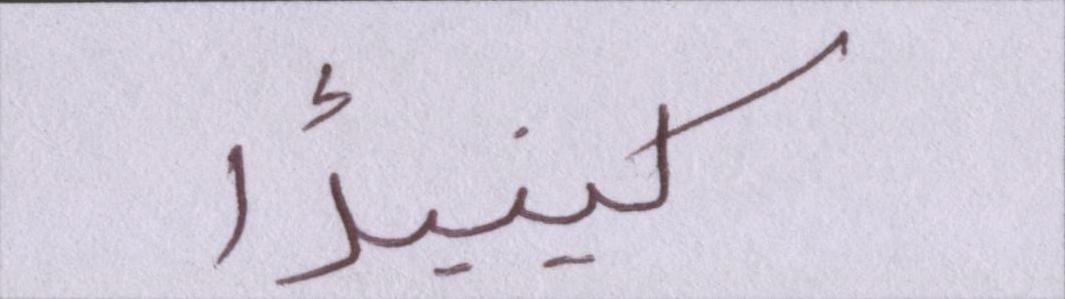 کینیڈا